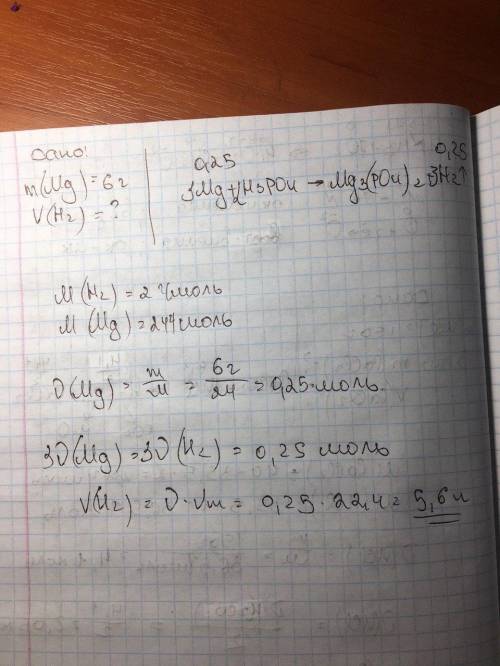 Дано:
m(Mg)=6г
V(H2)=?
0,25 0,25
3Mg+2H3PO4 → Mg3(PO4)2+3H2↑
M(H2)=2г/моль
M(Mg)=24г/моль
ν(Mg)= m/M = 6г/24 =0,25 моль.
3ν(Mg)=3ν(H2)=0,25 моль
V(H2)=ν·Vm=0,25·22,4=5,6л